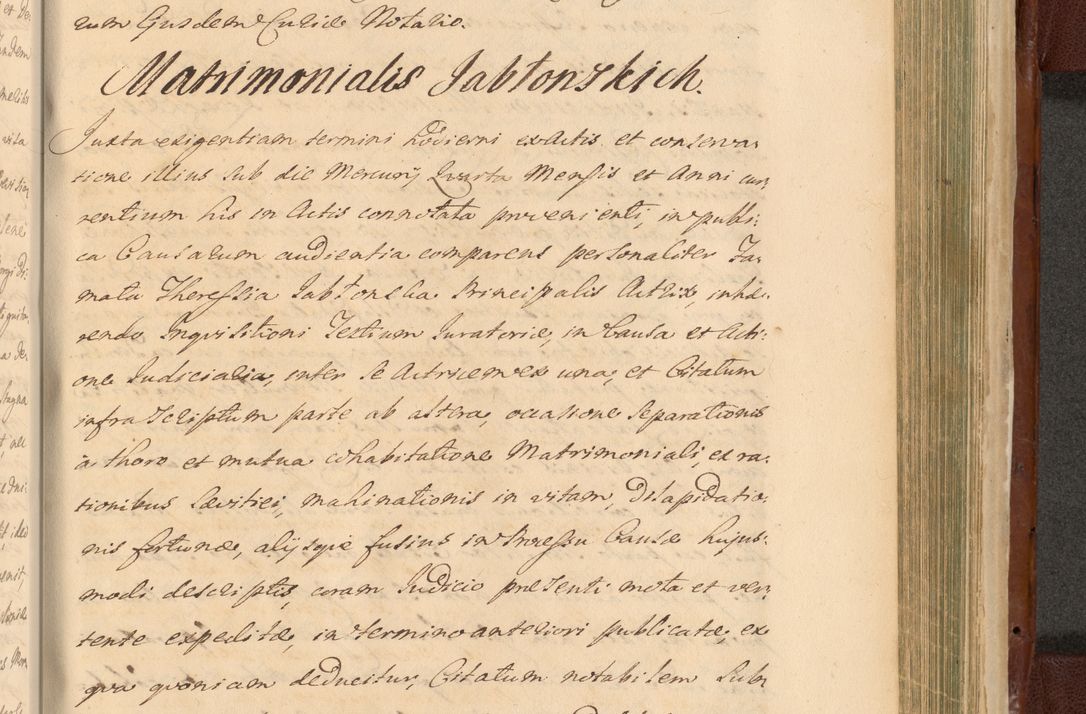 rum Ejusdem Curiæ Notario.
Matrimonialis Jabłonskich.
Juxta exigentiam termini hodierni ex Actis et conserva-
tione illius sub die Mercurij Quarta Mensis et Anni cur,
rentium his in Actis connotata provenienti, in publi-
ca Causarum audientia comparens personaliter Fa,
mata Theressia Jabłonska Principalis Actrix, inhæ-
rendo Inqvisitioni Testium Juratoriæ, in Causa et Acti-
one Judicialia, inter Se Actricem ex una, et Citatum
infra Scriptum parte ab altera, occasione Separationis
a thoro et mutua cohabitatione Matrimoniali, ex ra-
tionibus Sævitiei, mahinationis in vitam, Dilapidatio,
nis fortunæ, alijsqve fusius in Processu Causæ hujus-
modi descriptis, coram Judicio præsenti mota et ver,
tente expeditæ, in termino anteriori publicatæ, ex
qva qvoniam deducitur, Citatum notabilem Sub,